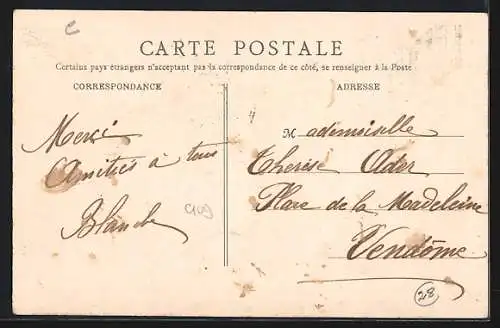 C
CARTE POSTALE
Certains pays étrangers n'acceptant pas la correspondance de ce côté, se renseigner à la Poste
CORRESPONDANCE
ADRESSE
Merci
Amitiés à tous
Blanche
Mademoiselle
Therèse Ader
Place de la Madeleine
Vendôme
28